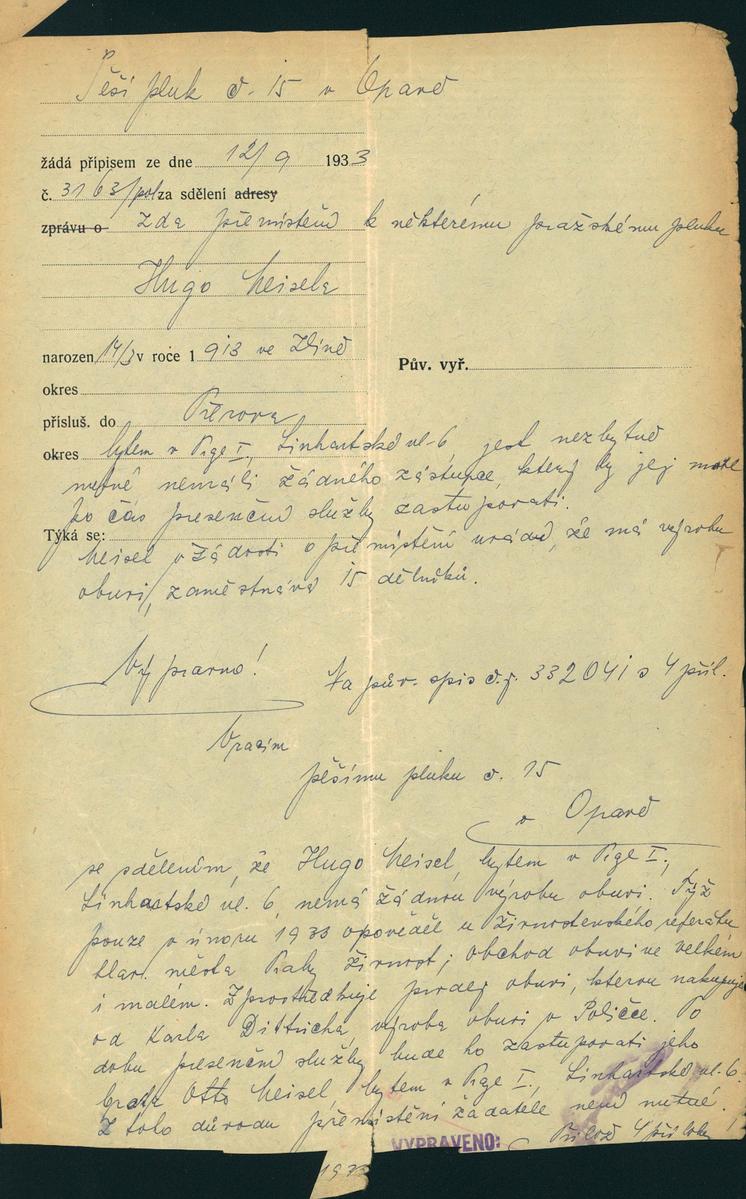 Pěší pluk č. 15 v Opavě
žádá přípisem ze dne 12/9 1933
č. 3163/pol za sdělení adresy
zprávu o zda přemístění k některému pražskému pluku
Hugo Meisela
narozen 14/3 v roce 1913 ve Zlíně
Pův. vyř.
okres
přísluš. do Přerova
okres bytem v Pze I., Linhartská ul. 6 jest nezbytně
nutné nemá-li žádného zástupce, který by jej mohl
po čas presenční služby zastupovati.
Týká se:
Meisel v žádosti o přemístění uvádí, že má výrobu
obuvi, zaměstnává 15 dělníků.
Vypraveno!
Na pův. spis č.j. 332041 s 4 příl.
Vracím
pěšímu pluku č. 15
v Opavě
se sdělením, že Hugo Meisel, bytem v Pze I.,
Linhartská ul. 6, nemá žádnou výrobu obuvi. Týž
pouze v únoru 1933 opověděl u živnostenského referátu
hlav. města Prahy živnost; obchod obuví ve velkém
i malém. Zprostředkuje prodej obuvi, kterou nakupuje
od Karla Dittricha, výroba obuvi v Poličce. Po
dobu presenční služby bude ho zastupovati jeho
bratr Otto Meisel, bytem v Pze I., Linhartská ul. 6.
Z toho důvodu přemístění žadatele není nutné.
Příloh 4 přílohy
VYPRAVENO:
193